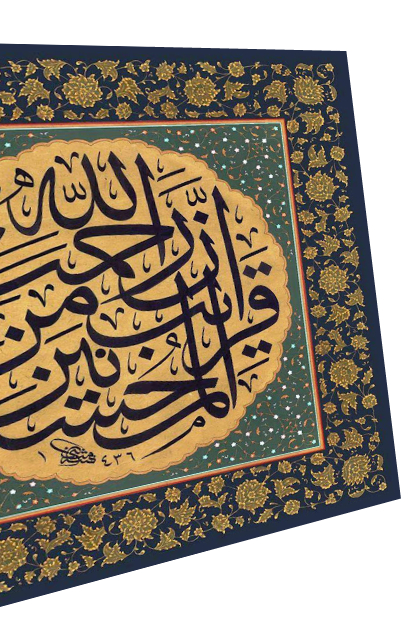 إن رحمت الله
قريب من
المحسنين
١٤٣٦